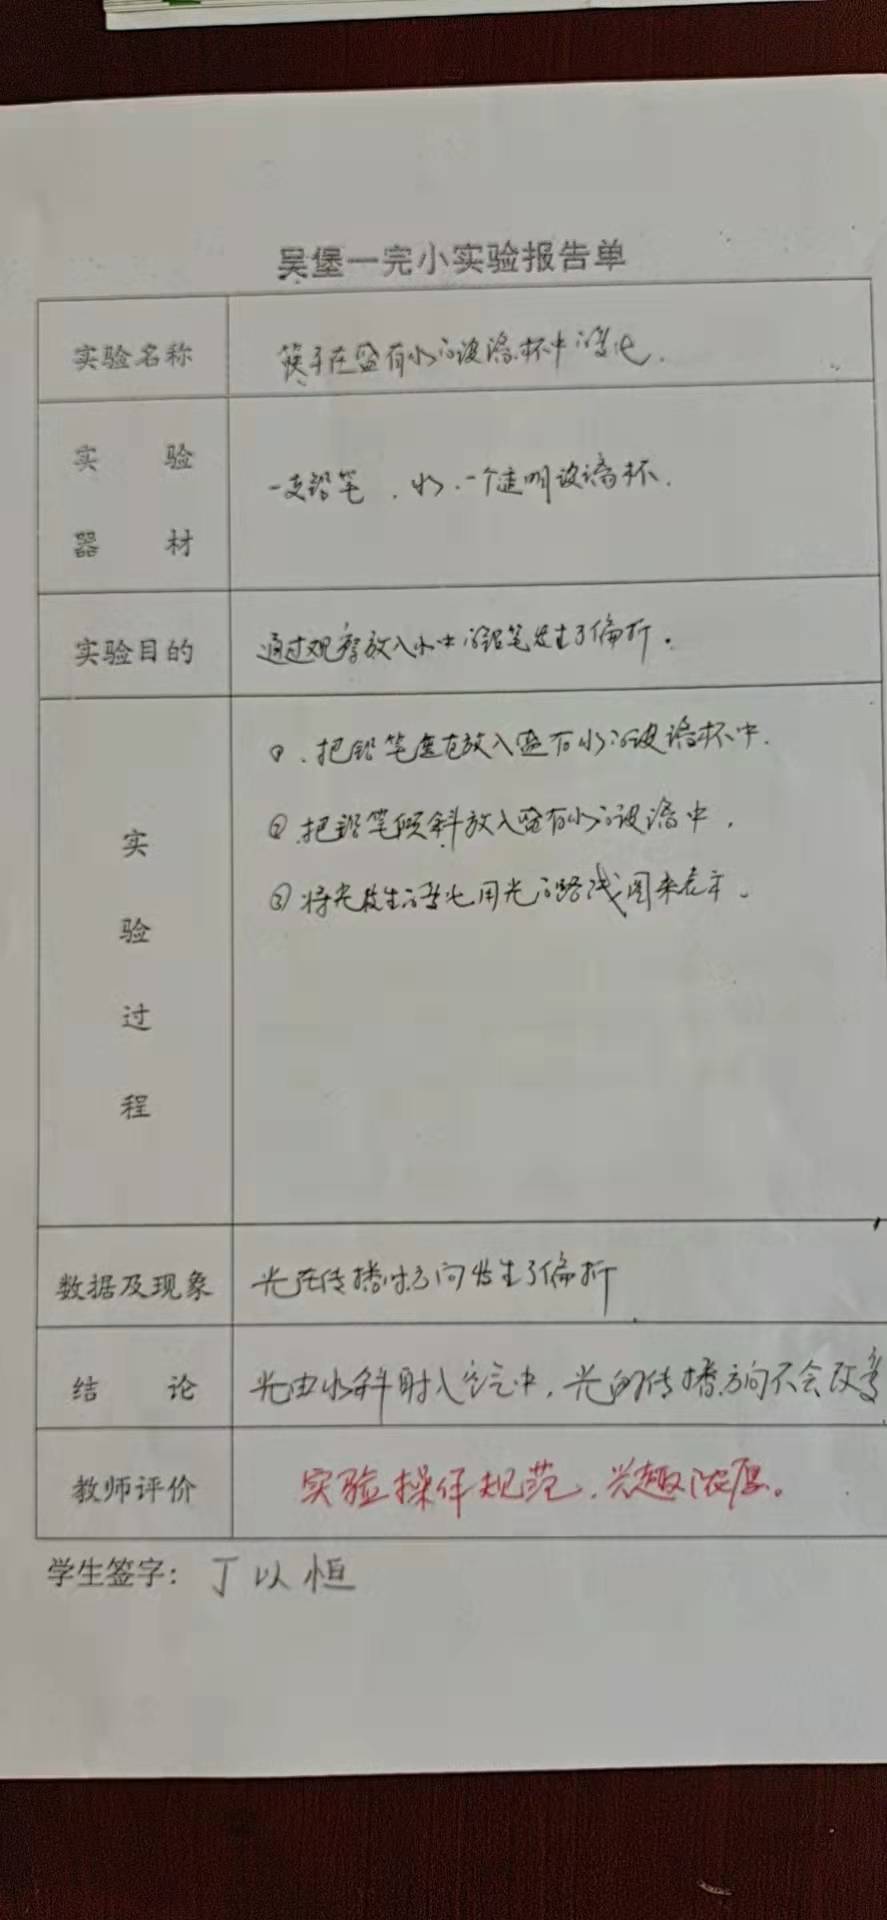 吴堡一完小实验报告单
实验名称 筷子在盛有水的玻璃杯中的变化.
实验器材 一支铅笔、水、一个透明玻璃杯.
实验目的 通过观察放入水中的铅笔发生了偏折.
实验过程
①.把铅笔垂直放入盛有水的玻璃杯中.
②把铅笔倾斜放入盛有水的玻璃中.
③将光发生的变化用光的路线图来表示.
数据及现象 光在传播时方向发生了偏折
结论 光由水斜射入空气中,光的传播方向不会改变
教师评价 实验操作规范、兴趣浓厚。
学生签字：丁以恒